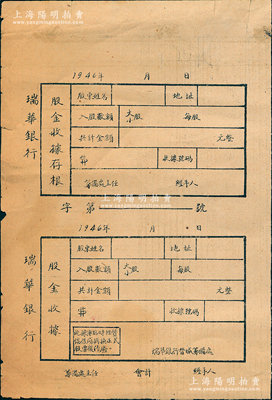 上海陽明拍賣
www.ymauction.com
1946年　　月　　日
瑞華銀行
股金收據存根
股東姓名　　地址
入股數額　大小股　每股
共計金額　　元整
收據號碼
籌備處主任　　經手人
字　第　　號
1946年　　月　　日
瑞華銀行
股金收據
股東姓名　　地址
入股數額　大小股　每股
共計金額　　元整
收據號碼
瑞華銀行晉城籌備處
籌備處主任　會計　經手人
上海陽明拍賣